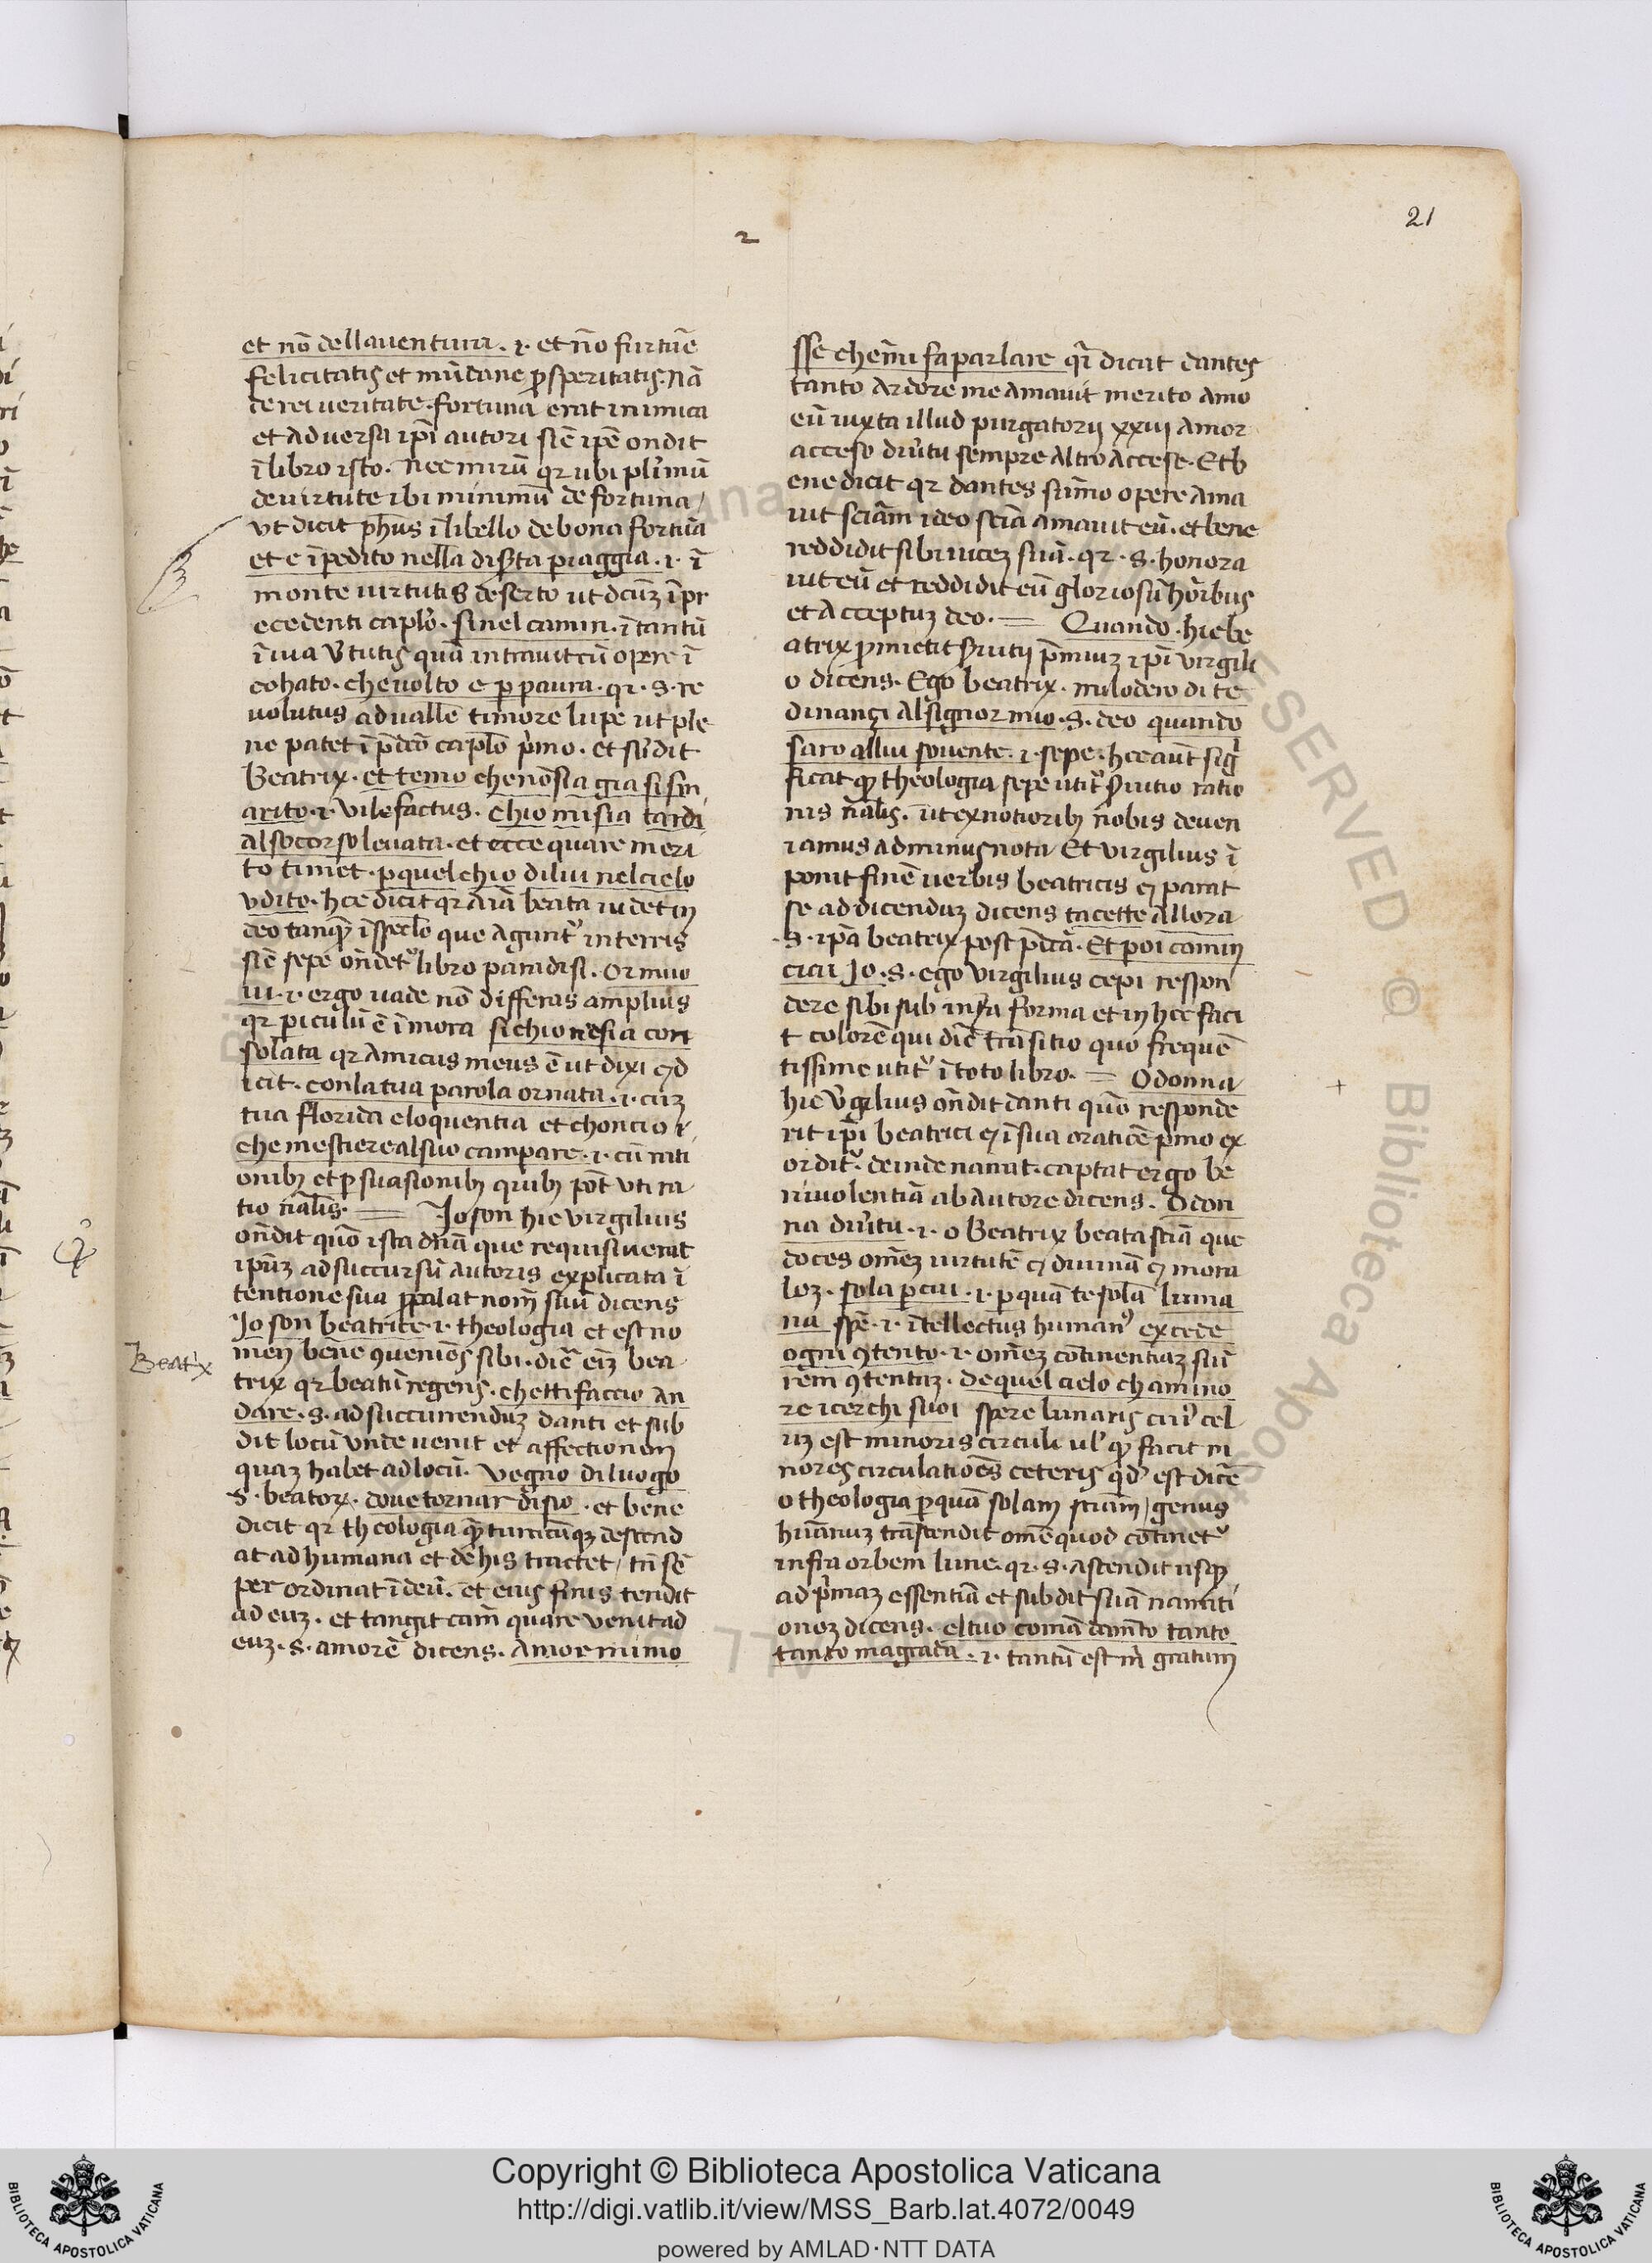 21
2
et nō dellauentura . i . et nō fortūe
felicitatis et mūdane prosperitatis . nā
de rei ueritate . fortuna erat inimica
et aduersa ip̄i autori sic̄ ip̄e ondit
ī libro isto . nec mirū qr ubi plimū
de uirtute ibi minimū de fortuna /
vt dicit ph̄us ī libello de bona fortūa
et e īpedito nella dista piaggia . i . ī
monte uirtutis deserto ut dcūz ī pr
ecedenti caplo . si nel camin . ī tantū
ī uia vtutis quā intrauit cū opere ī
cohato . che uolto e per paura . qr . s . re
uolutus ad uallē timore lupe ut ple
ne patet ī pdcō caplō pimo . et sbdit
Beatrix . et temo che nō sia gia si sm
arito . i . vilefactus . chio mi sia tardi
al soccorso leuata . et ecce quare meri
to timet . per quel chio di lui nel cielo
vdito . hec dicit qr aīa beata uidet in
deo tanq̄ ī speclo que agunt in terris
sic̄ sepe ōndet libro paradisi . Or muo
ui . i . ergo uade nō differas amplius
qr piculū ē ī mora si chio ne sia con
solata qr amicus meus ē ut dixi et d
icit . con la tua parola ornata . i . cuz
tua florida eloquentia et chon cio
che mestiere al suo campare . i . cū rati
onibȝ et persuasionibȝ quibȝ pōt vti ra
tio nālis . Jo son hic virgilius
ōndit quō ista dn̄a que requisiuerat
ipūz ad succursū autoris explicata ī
tentione sua propalat nom̄ suū dicens
Jo son beatrice . i . theologia et est no
men bene 9ueniens sibi . dic̄ eīz bea
Beatrix
trix qr beatū regens . che tti faccio an
dare . s . ad succurrenduz danti et sub
dit locū vnde uenit et affectionem
quaz habet ad locū . vegno di luogo
s . beator . doue tornar disio . et bene
dicit qr theologia q̄tumcūqz descend
at ad humana et de his tractet / tn̄ sē
per ordinat ī deū . et eius finis tendit
ad euz . et tangit cam̄ quare venit ad
euz . s . amorē dicens . Amor mi mo
sse che mi fa parlare qi dicat dantes
tanto ardore me amauit merito amo
eū iuxta illud purgatorii xxij amor
acceso diutu sempre altro accese . Et b
ene dicit qr dantes sūmo opere ama
uit sciām ideo sciā amauit eū . et bene
reddidit sibi uicez suā . qr . s . honora
uit eū et reddidit eū gloriosū horibus
et acceptuz deo . Quando . hic be
atrix promictit seruitii pmiuz ipi virgili
o dicens . Ego beatrix . mi lodero di te
dinançi al signor mio . s . deo quando
saro allui souente . i . sepe . hec aut sig
ficat q theologia sepe utit seruitio ratio
nis nālis . ut ex notioribȝ nobis deuen
iamus ad minus nota Et virgilius ī
ponit finē uerbis beatricis et parat
se ad dicenduz dicens tacette allora
. s . ipā beatrix post pdcā . Et poi comin
ciai Jo . s . ego virgilius cepi respon
dere sibi sub infra forma et in hoc faci
t colorē qui dic̄ transitio quo frequē
tissime utit ī toto libro . O donna
hic vgilius ōndit danti quō responde
rit ipi beatrici et ī sua oratiōe pmo ex
ordit . deinde narrat . captat ergo be
niuolentiā ab autore dicens . O don
na diutu . i . o Beatrix beata sciā que
doces omēz uirtutē et diuinā et mora
loz . sola per cui . i . per quā te solā luma
na spē . i . ītellectus human9 excede
ogni 9tento . i . omēz continentiaz siu
rem 9tentaz . de quel cielo cha mino
re i cerchi suoi spere lunaris cui cel
uz est minoris circuli ul q facit mi
nores circulatioēs ceteris qd est dicē
o theologia per quā solam sciām / genus
huānuz trāscendit omē quod continet
infra orbem lune . qr . s . ascendit usq
ad pmaz essentiā et subdit suā narrati
onez dicens . el tuo comādamēto tanto
tanto magrada . i . tantū est m gratum
Copyright © Biblioteca Apostolica Vaticana
http://digi.vatlib.it/view/MSS_Barb.lat.4072/0049
powered by AMLAD·NTT DATA
BIBLIOTECA APOSTOLICA VATICANA
BIBLIOTECA APOSTOLICA VATICANA